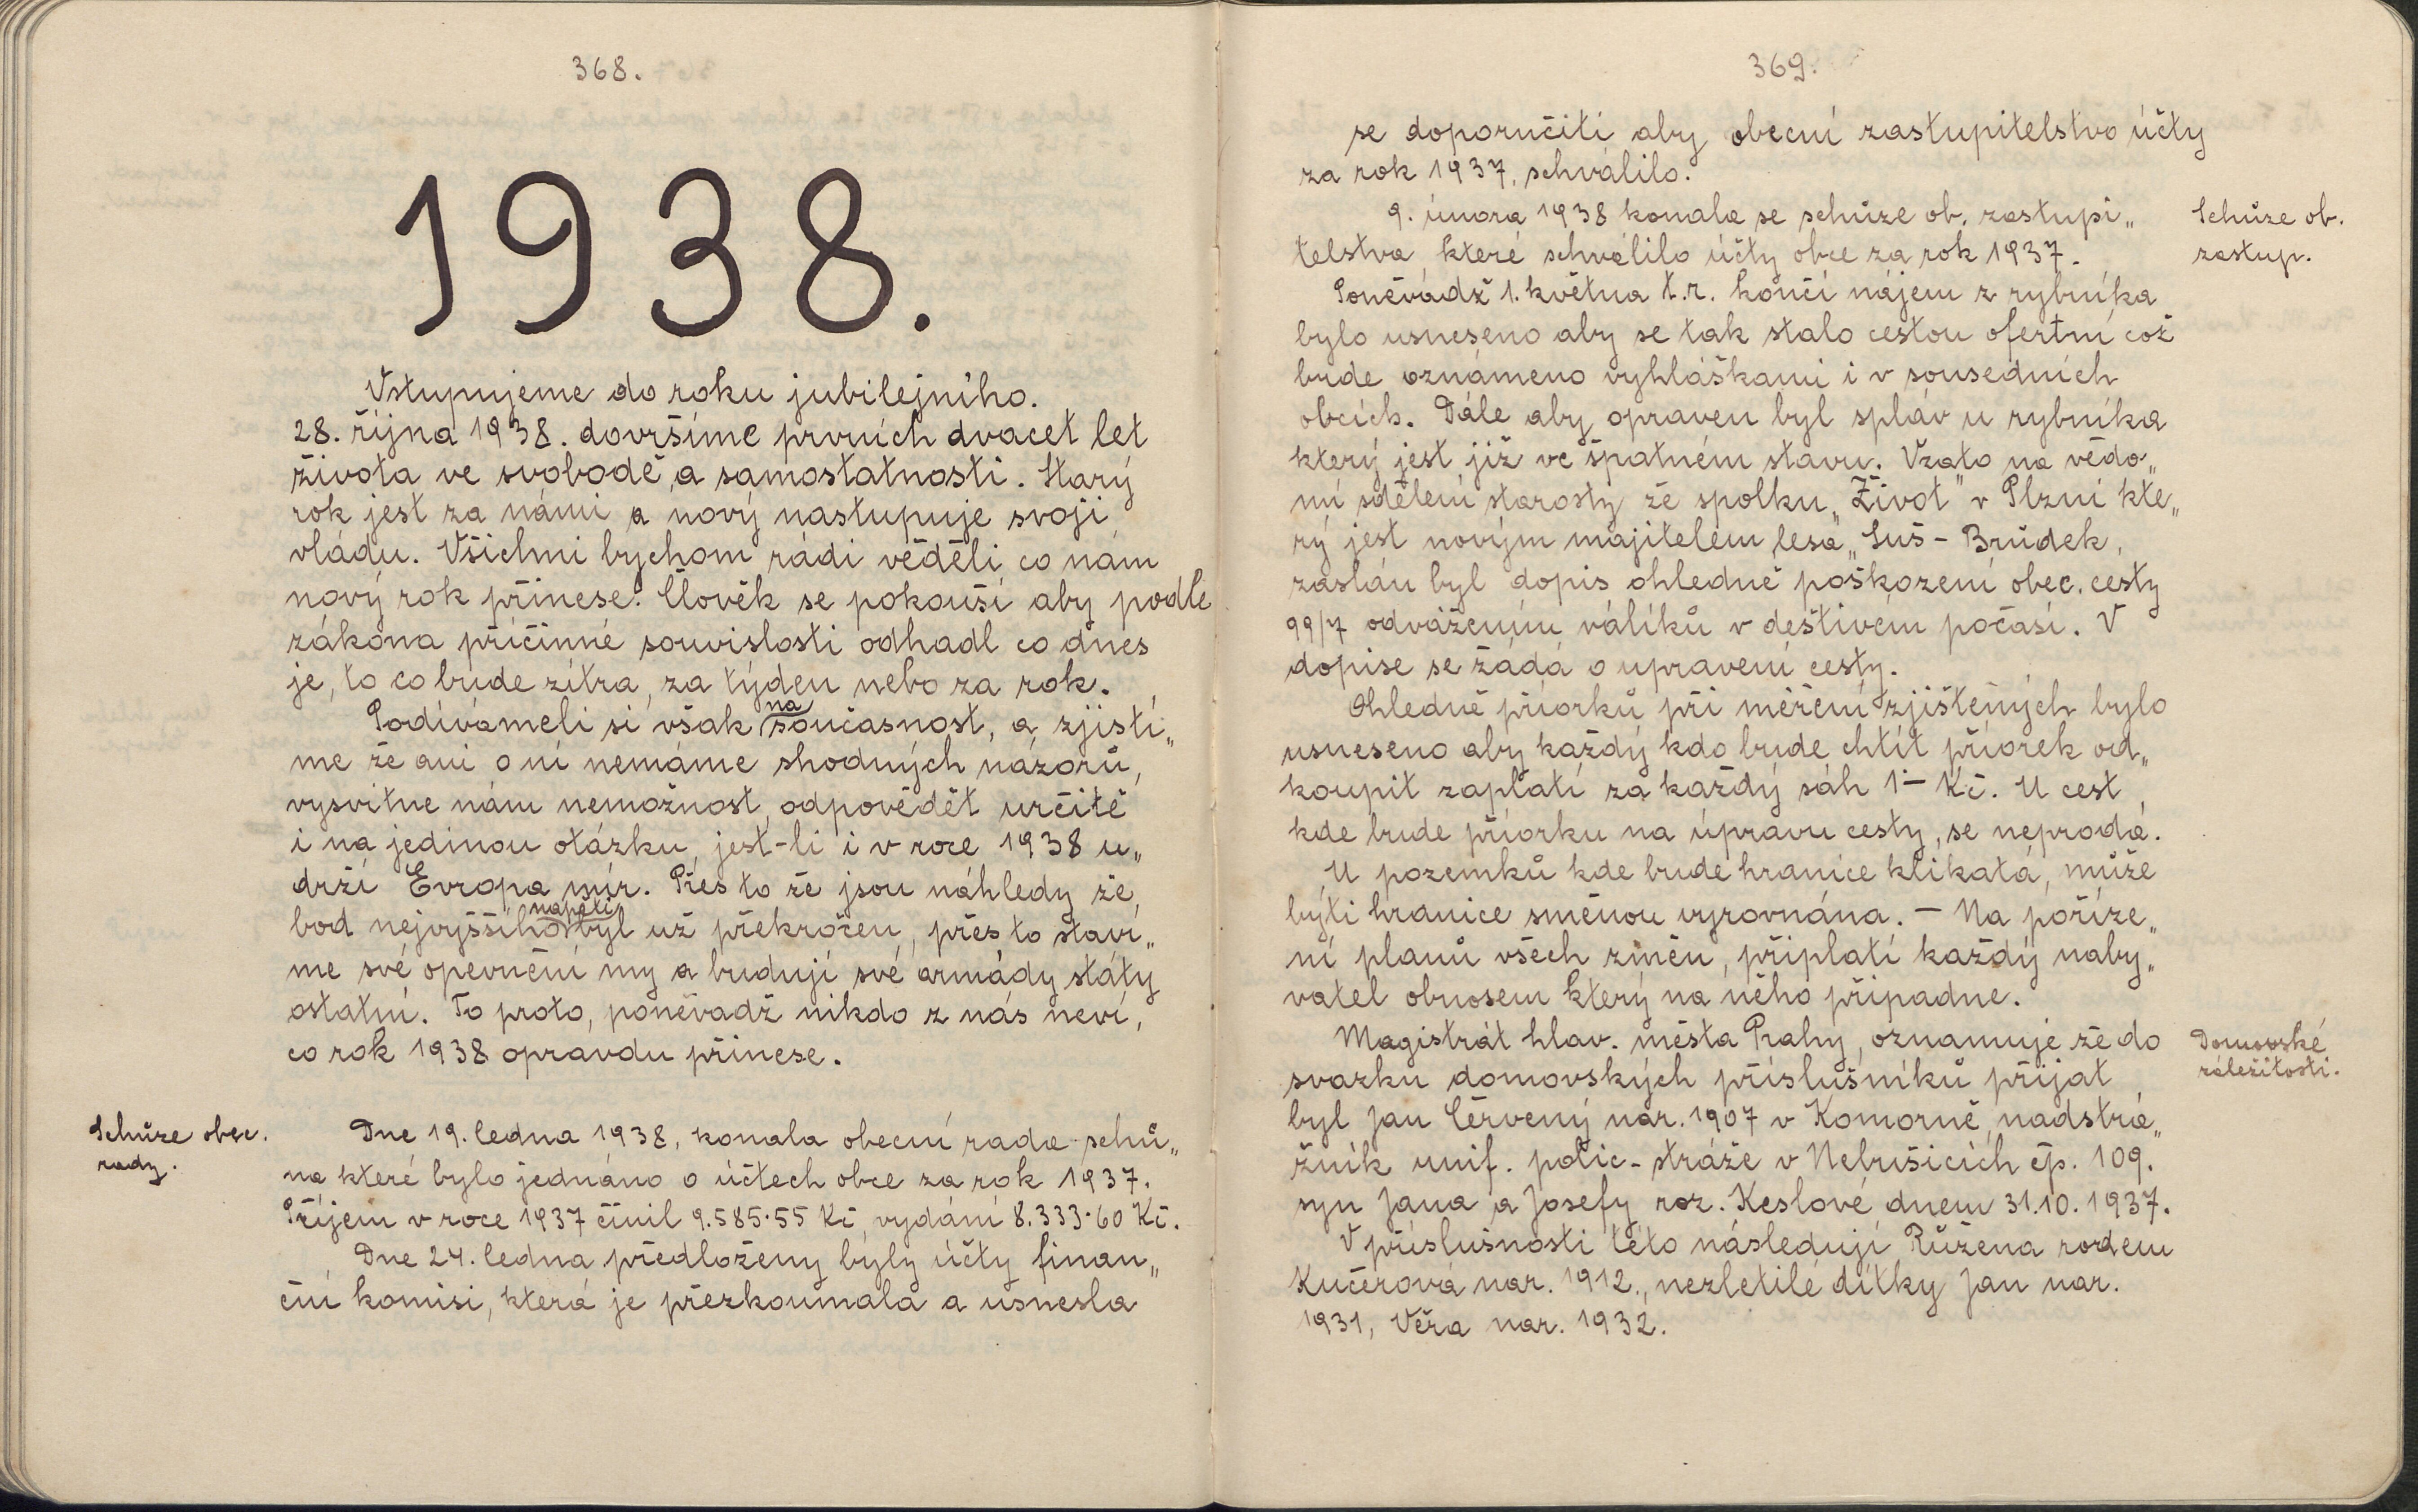 368.
1938.
Vstupujeme do roku jubilejního.
28. října 1938. dovršíme prvních dvacet let
života ve svobodě a samostatnosti. Starý
rok jest za námi a nový nastupuje svoji
vládu. Všichni bychom rádi věděli co nám
nový rok přinese. Člověk se pokouší aby podle
zákona příčinné souvislosti odhadl co dnes
je, to co bude zítra, za týden nebo za rok.
Podívámeli si však na současnost, a zjistí„
me že ani o ní nemáme shodných názorů,
vysvitne nám nemožnost odpovědět určitě
i na jedinou otázku, jest-li i v roce 1938 u„
drží Evropa mír. Přes to že jsou náhledy že,
bod nejvyššího napětí byl už překročen, přes to staví„
me své opevnění my a budují své armády státy
ostatní. To proto, poněvadž nikdo z nás neví,
co rok 1938 opravdu přinese.
Schůze obec.
rady.
Dne 19. ledna 1938, konala obecní rada schů„
na které bylo jednáno o účtech obce za rok 1937.
Příjem v roce 1937 činil 9.585·55 Kč, vydání 8.333·60 Kč.
Dne 24. ledna předloženy byly účty finan„
ční komisi, která je přezkoumala a usnesla
369.
se doporučiti aby obecní zastupitelstvo účty
za rok 1937, schválilo.
9. února 1938 konala se schůze ob. zastupi„
telstva které schválilo účty obce za rok 1937.
Schůze ob.
zastup.
Poněvadž 1. května t.r. končí nájem z rybníka
bylo usneseno aby se tak stalo cestou ofertní což
bude oznámeno vyhláškami i v sousedních
obcích. Dále aby opraven byl spláv u rybníka
který jest již ve špatném stavu. Vzato na vědo„
mí sdělení starosty že spolku „Život" v Plzni kte„
rý jest novým majitelem lesa „Suš - Brůdek,
zaslán byl dopis ohledně poškození obec. cesty
99/7 odvážením válíků v deštivém počasí. V
dopise se žádá o upravení cesty.
Ohledně příorků při měření zjištěných bylo
usneseno aby každý kdo bude chtít příorek od„
koupit zaplatí za každý sáh 1·- Kč. U cest
kde bude příorku na úpravu cesty, se neprodá.
U pozemků kde bude hranice klikatá, může
býti hranice směnou vyrovnána. - Na poříze„
ní planů všech změn, připlatí každý naby„
vatel obnosem který na něho připadne.
Magistrát hlav. města Prahy, oznamuje že do
svazku domovských příslušníků přijat
byl Jan Červený nar. 1907 v Komorně, nadstrá„
žník unif. polic - stráže v Nebušicích čp. 109.
syn Jana a Josefy roz. Keslové dnem 31.10. 1937.
Domovské
záležitosti.
V příslušnosti této následují Růžena rodem
Kučerová nar. 1912., nezletilé dítky Jan nar.
1931, Věra nar. 1932.